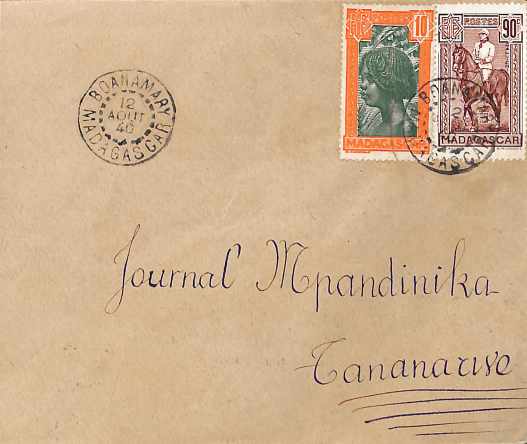 BOANAMARY
12
AOUT
46
MADAGASCAR
RF
10c
MADAGASCAR
RF
POSTES
90c
MADAGASCAR
Journal Mpandinika
Tananarive